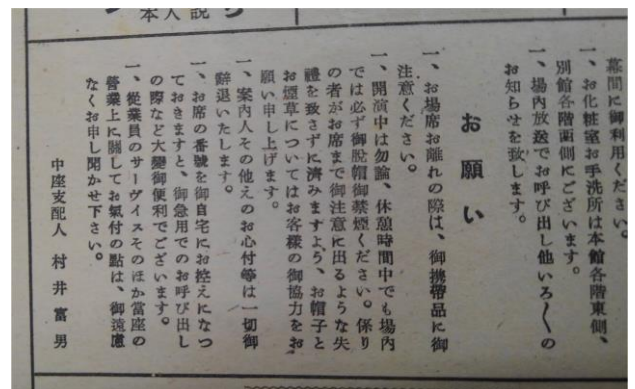 本人説
幕間に御利用ください。
一、お化粧室お手洗所は本館各階東側、
別館各階西側にございます。
一、場内放送でお呼び出し他いろ〱の
お知らせを致します。
お願い
一、お場席お離れの際は、御携帶品に御
注意ください。
一、開演中は勿論、休憩時間中でも場内
では必ず御脱帽御禁煙ください。係り
の者がお席まで御注意に出るような失
禮を致さずに済みますよう、お帽子と
お煙草についてはお客様の御協力をお
願い申し上げます。
一、案内人その他えのお心付等は一切御
辭退いたします。
一、お席の番號を御自宅にお控えになつ
ておきますと、御急用でのお呼び出し
の際など大變御便利でございます。
一、從業員のサーヴイスそのほか當座の
營業上に關してお氣付の點は、御遠慮
なくお申し聞かせ下さい。
中座支配人 村井富男